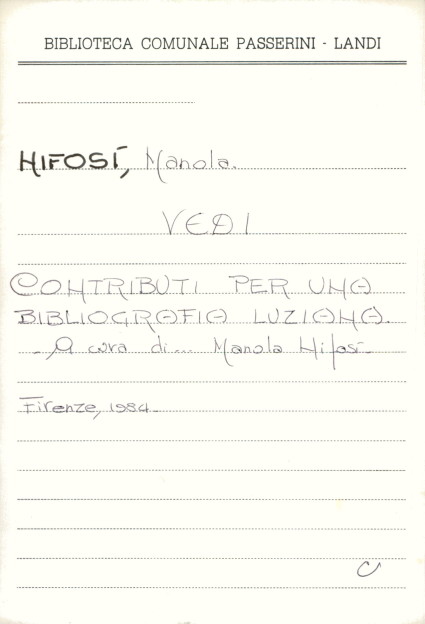 BIBLIOTECA COMUNALE PASSERINI - LANDI
NIFOSÍ, Manola.
VEDI
CONTRIBUTI PER UNA
BIBLIOGRAFIA LUZIANA.
- A cura di... Manola Nifosí -
Firenze, 1984 -